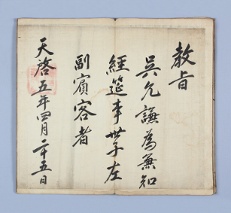 教旨
吳允謙為兼知
經筵事世子左
副賓客者
天啓五年四月二十五日